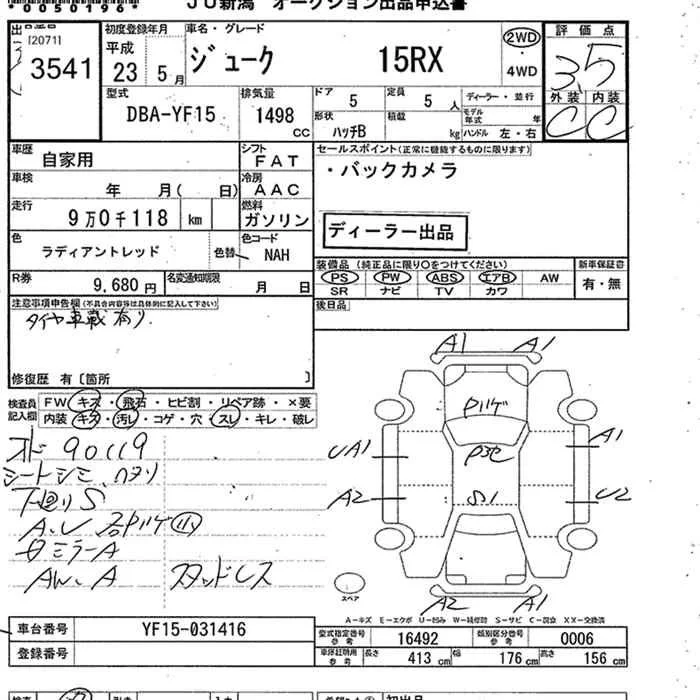 *050196*
JU新潟 オークション出品申込書
[2071]
3541
初度登録年月
平成
23 5月
車名・グレード
ジューク 15RX
2WD
・
4WD
評価点
3.5
外装 内装
C C
型式
DBA-YF15
排気量
1498
CC
ドア 5
定員 5人
ディーラー・並行
形状
ハッチB
積載
kg
モデル年式 年
ハンドル 左・右
車歴
自家用
シフト
FAT
セールスポイント(正常に機能するものに限ります)
・バックカメラ
車検
年 月( 日)
冷房
AAC
走行
9万0千118 km
燃料
ガソリン
ディーラー出品
色
ラディアントレッド
色替
色コード
NAH
装備品(純正品に限り○をつけてください)
新車保証書
R券
9,680円
名変通知期限
月 日
PS・PW・ABS・エアB・AW
SR ナビ TV カワ
有・無
注意事項申告欄(不具合内容等は具体的に記入して下さい)
タイヤ車載有り
後日品
修復歴 有〔箇所 〕
検査員記入欄
FW キズ・飛石・ヒビ割・リペア跡・×要
内装 キズ・汚レ・コゲ・穴・スレ・キレ・破レ
オド 90119
シートシミ、ヘタリ
下廻りS
ミラーA
AW、A スタッドレス
A1 A1
UA1
A1
A2
S1
U2
A2 A1
スペア
A-キズ E-エクボ U-凹み W-補修跡 S-サビ C-腐食 XX-交換済
車台番号 YF15-031416
型式指定番号参考 16492
類別区分番号参考 0006
登録番号
車庫証明用参考 長さ 413cm 幅 176cm 高さ 156cm